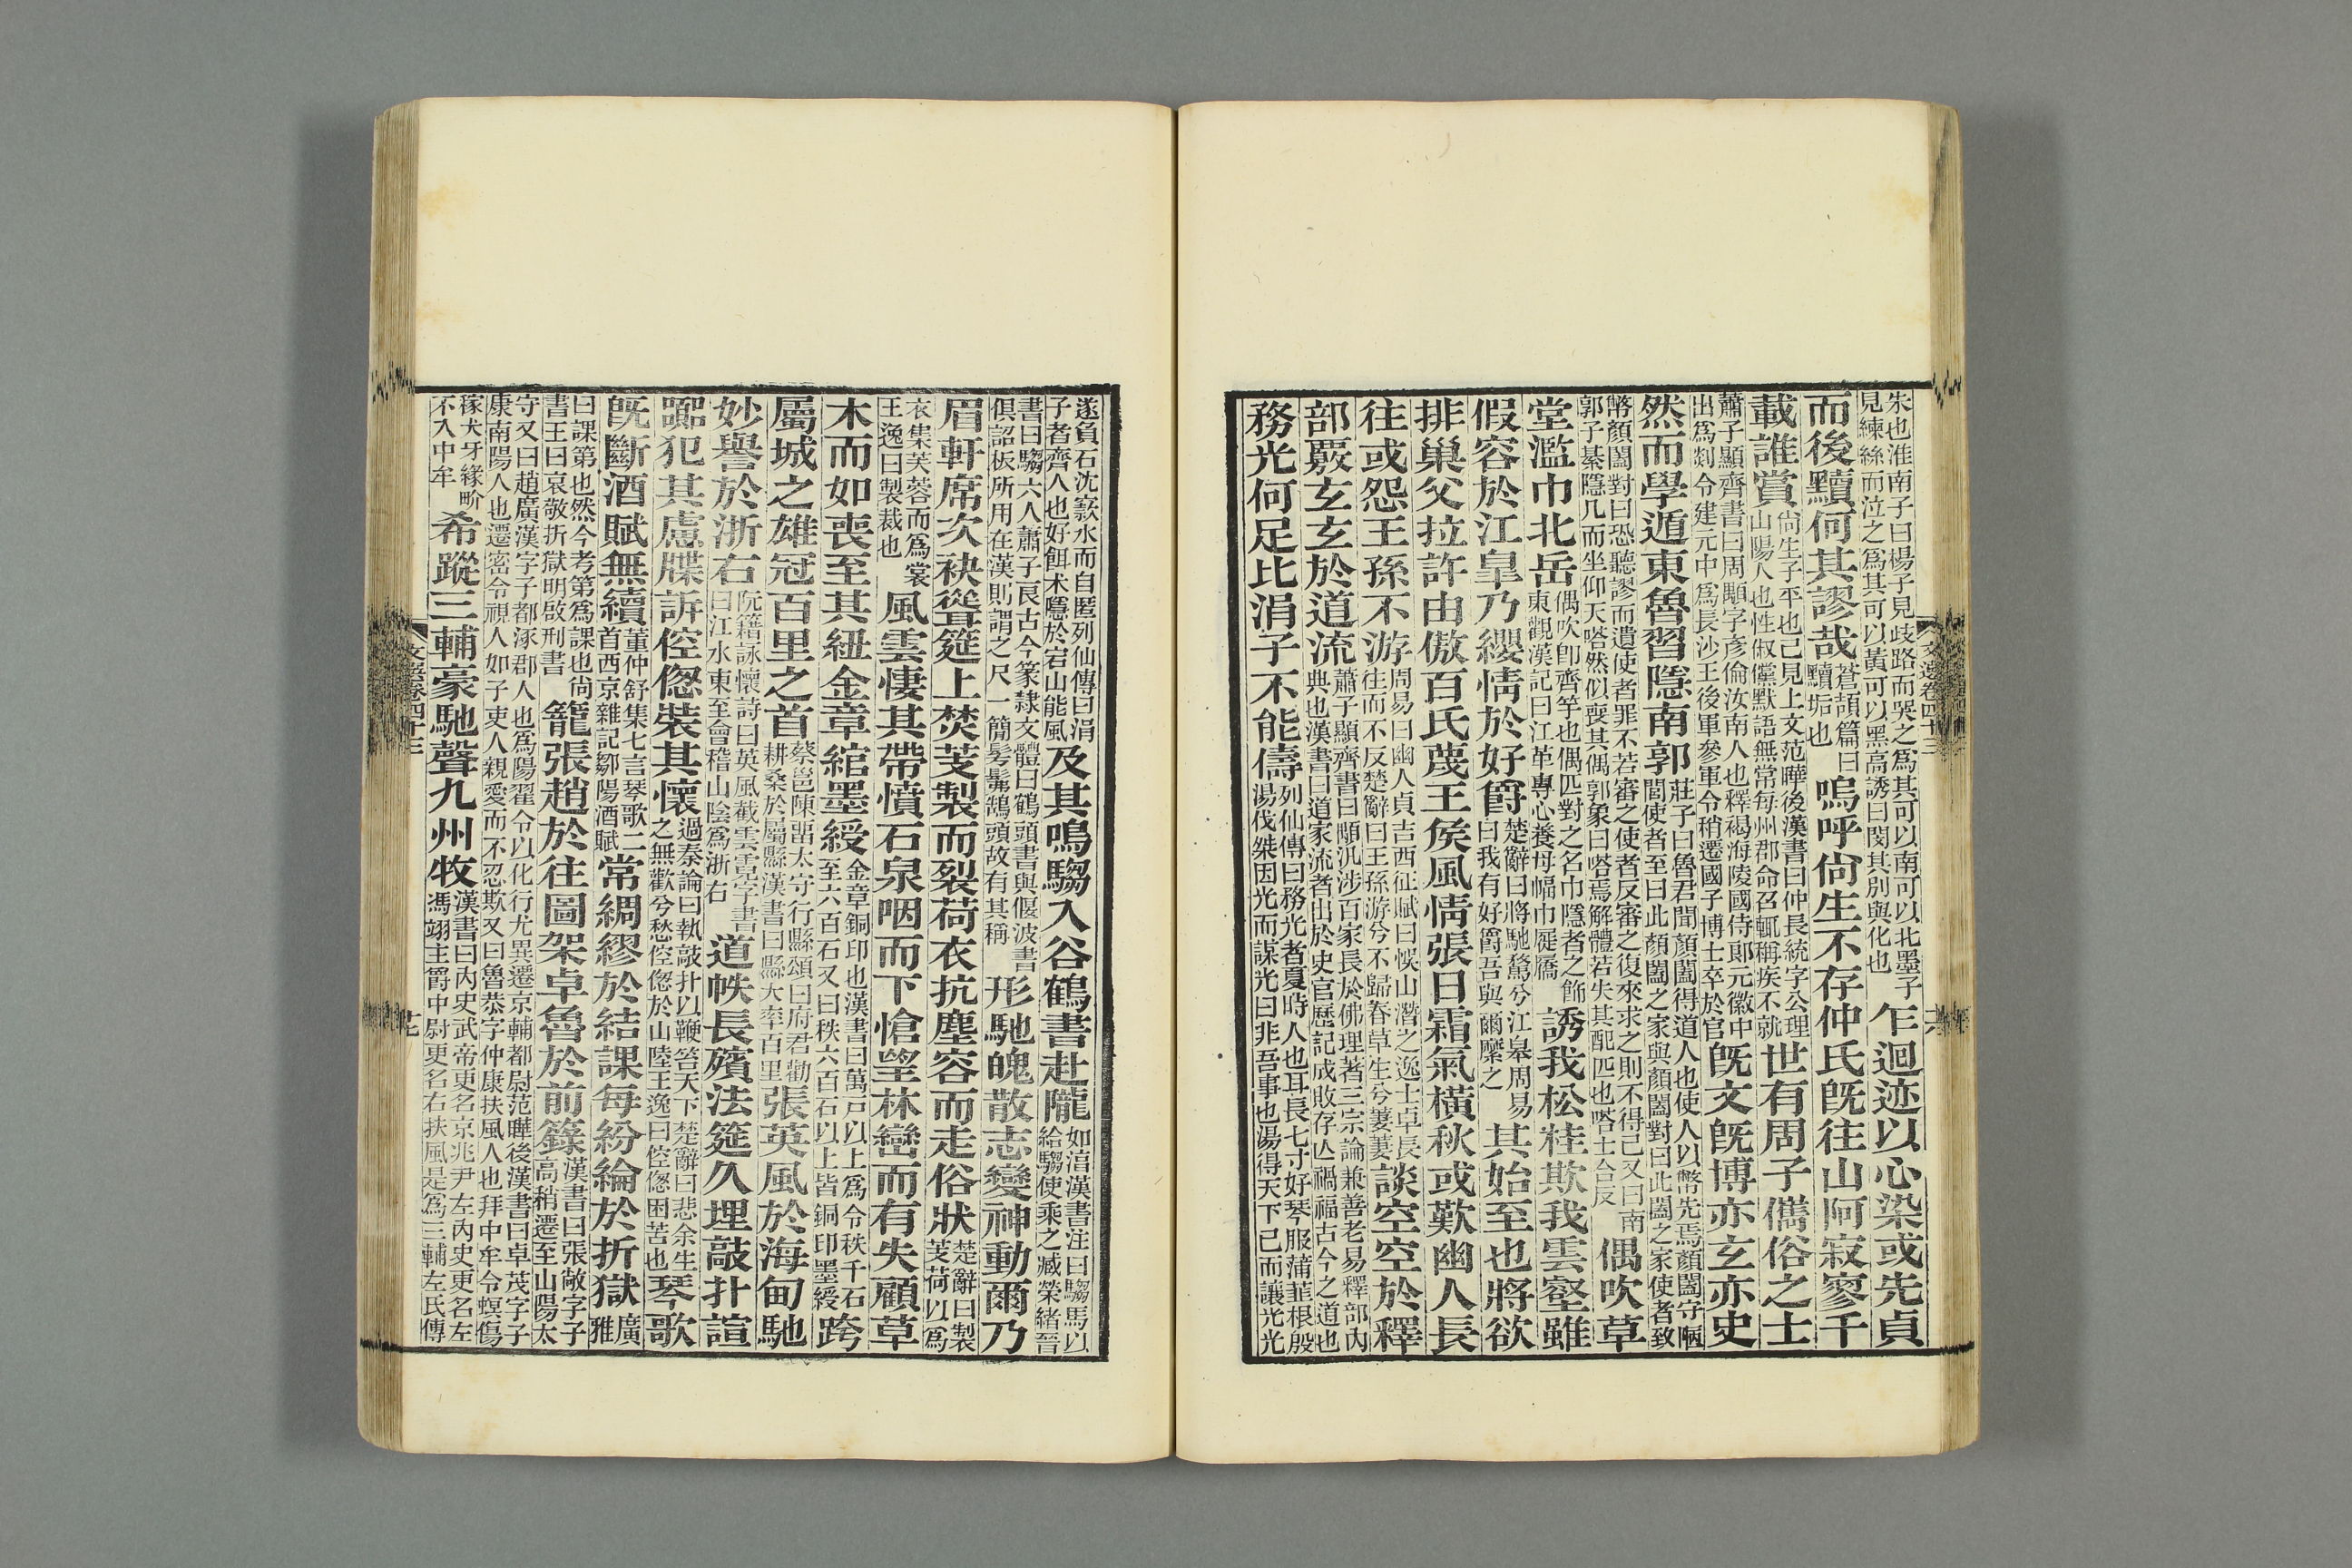 朱也淮南子曰楊子見歧路而哭之爲其可以南可以北墨子見練絲而泣之爲其可以黃可以黑高誘曰閔其別與化也乍迴迹以心染或先貞
而後黷何其謬哉蒼頡篇曰黷垢也嗚呼尙生不存仲氏旣往山阿寂寥千
載誰賞尙生子平也已見上文范曄後漢書曰仲長統字公理山陽人也性俶儻默語無常每州郡命召輒稱疾不就世有周子儁俗之士
蕭子顯齊書曰周顒字彥倫汝南人也釋褐海陵國侍郞元徽中出爲剡令建元中爲長沙王後軍參軍令稍遷國子博士卒於官旣文旣博亦玄亦史
然而學遁東魯習隱南郭莊子曰魯君聞顏闔得道人也使人以幣先焉顏闔守陋閭使者至曰此顏闔之家與顏闔對曰此闔之家使者致
幣顏闔對曰恐聽謬而遺使者罪不若審之使者反審之復來求之則不得已又曰南郭子綦隱几而坐仰天嗒然似喪其偶郭象曰嗒焉解體若失其配匹也嗒土合反偶吹草
堂濫巾北岳偶吹卽齊竽也偶匹對之名巾隱者之飾東觀漢記曰江革專心養母幅巾屣履誘我松桂欺我雲壑雖
假容於江皐乃纓情於好爵楚辭曰將馳騖兮江皋周易曰我有好爵吾與爾縻之其始至也將欲
排巢父拉許由傲百氏蔑王侯風情張日霜氣橫秋或歎幽人長
往或怨王孫不游周易曰幽人貞吉西征賦曰悞山潛之逸士卓長往而不反楚辭曰王孫游兮不歸春草生兮萋萋談空空於釋
部覈玄玄於道流蕭子顯齊書曰顒汎涉百家長於佛理著三宗論兼善老易釋部內典也漢書曰道家流者出於史官歷記成敗存亡禍福古今之道也
務光何足比涓子不能儔列仙傳曰務光者夏時人也耳長七寸好琴服蒲韮根殷湯伐桀因光而謀光曰非吾事也湯得天下已而讓光光
文選卷四十三
遂負石沈窾水而自匿列仙傳曰涓子者齊人也好餌朮隱於宕山能風及其鳴騶入谷鶴書赴隴如淳漢書注曰騶馬以給騶使乘之臧榮緖晉
書曰騶六人蕭子良古今篆隸文體曰鶴頭書與偃波書俱詔板所用在漢則謂之尺一簡髣髴鵠頭故有其稱形馳魄散志變神動爾乃
眉軒席次袂聳筵上焚芰製而裂荷衣抗塵容而走俗狀楚辭曰製芰荷以爲
衣集芙蓉而爲裳王逸曰製裁也風雲悽其帶憤石泉咽而下愴望林巒而有失顧草
木而如喪至其紐金章綰墨綬金章銅印也漢書曰萬戶以上爲令秩千石至六百石又曰秩六百石以上皆銅印墨綬跨
屬城之雄冠百里之首蔡邕陳畱太守行縣頌曰府君勸耕桑於屬縣漢書曰縣大率百里張英風於海甸馳
妙譽於浙右阮籍詠懷詩曰英風截雲霓字書曰江水東至會稽山陰爲浙右道帙長殯法筵久埋敲扑諠
嚻犯其慮牒訴倥傯裝其懷過秦論曰執敲扑以鞭笞天下楚辭曰悲余生之無歡兮愁倥傯於山陸王逸曰倥傯困苦也琴歌
旣斷酒賦無續董仲舒集七言琴歌二首西京雜記鄒陽酒賦常綢繆於結課每紛綸於折獄廣雅
曰課第也然今考第爲課也尙書王曰哀敬折獄明啟刑書籠張趙於往圖架卓魯於前籙漢書曰張敞字子高稍遷至山陽太
守又曰趙廣漢字子都涿郡人也爲陽翟令以化行尤異遷京輔都尉范曄後漢書曰卓茂字子康南陽人也遷密令視人如子吏人親愛而不忍欺又曰魯恭字仲康扶風人也拜中牟令螟傷
稼犬牙緣畍不入中牟希蹤三輔豪馳聲九州牧漢書曰內史武帝更名京兆尹左內史更名左馮翊主爵中尉更名右扶風是爲三輔左氏傳
文選卷四十三